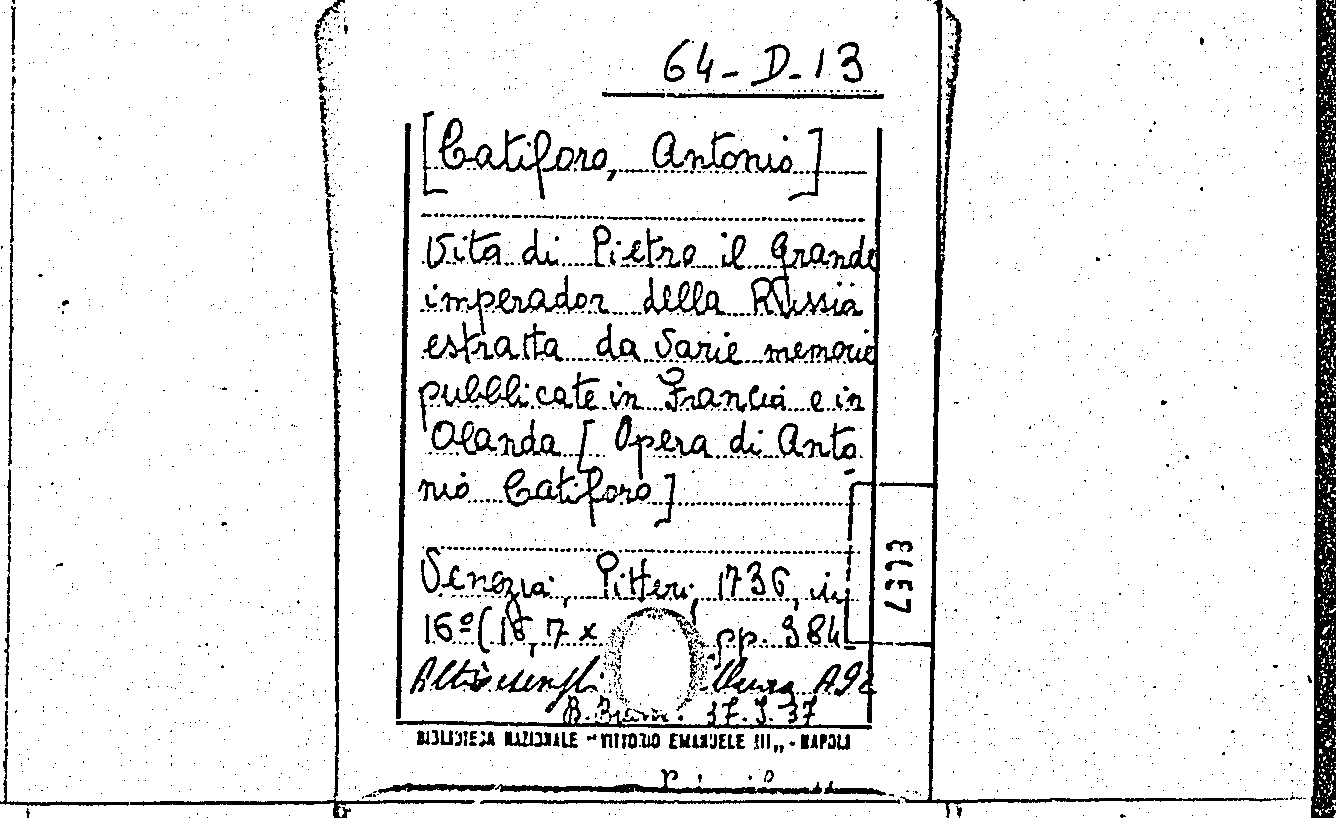 64-D-13
[Catiforo, Antonio]
Vita di Pietro il Grande
imperador della Russia
estratta da varie memorie
pubblicate in Francia e in
Olanda [Opera di Anto
nio Catiforo]
Venezia, Pitteri, 1736, in
16º (18,7 x pp. 384
BIBLIOTECA NAZIONALE "VITTORIO EMANUELE III" - NAPOLI